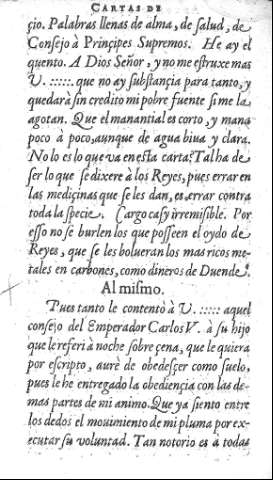 CARTAS DE
çio. Palabras llenas de alma, de salud, de
Consejo à Prinçipes Supremos. He ay el
quento. A Dios Señor, y no me estruxe mas
V. :::::. que no ay substançia para tanto, y
quedarà sin credito mi pobre fuente si me la
agotan. Que el manantial es corto, y mana
poco à poco, aunque de agua biua y clara.
No lo es lo que va en esta carta? Tal ha de
ser lo que se dixere à los Reyes, pues errar en
las mediçinas que se les dan, es, errar contra
toda la speçie. Cargo casy irremisible. Por
esso no se burlen los que posseen el oydo de
Reyes, que se les bolueran los mas ricos me-
tales en carbones, como dineros de Duende.
Al mismo.
Pues tanto le contentò à V. ::::: aquel
consejo del Emperador Carlos V. à su hijo
que le referi à noche sobre çena, que le quiera
por escripto, aurè de obedesçer como suelo,
pues le he entregado la obediençia con las de-
mas partes de mi animo. Que ya siento entre
los dedos el mouimiento de mi pluma por ex-
ecutar su voluntad. Tan notorio es à todas